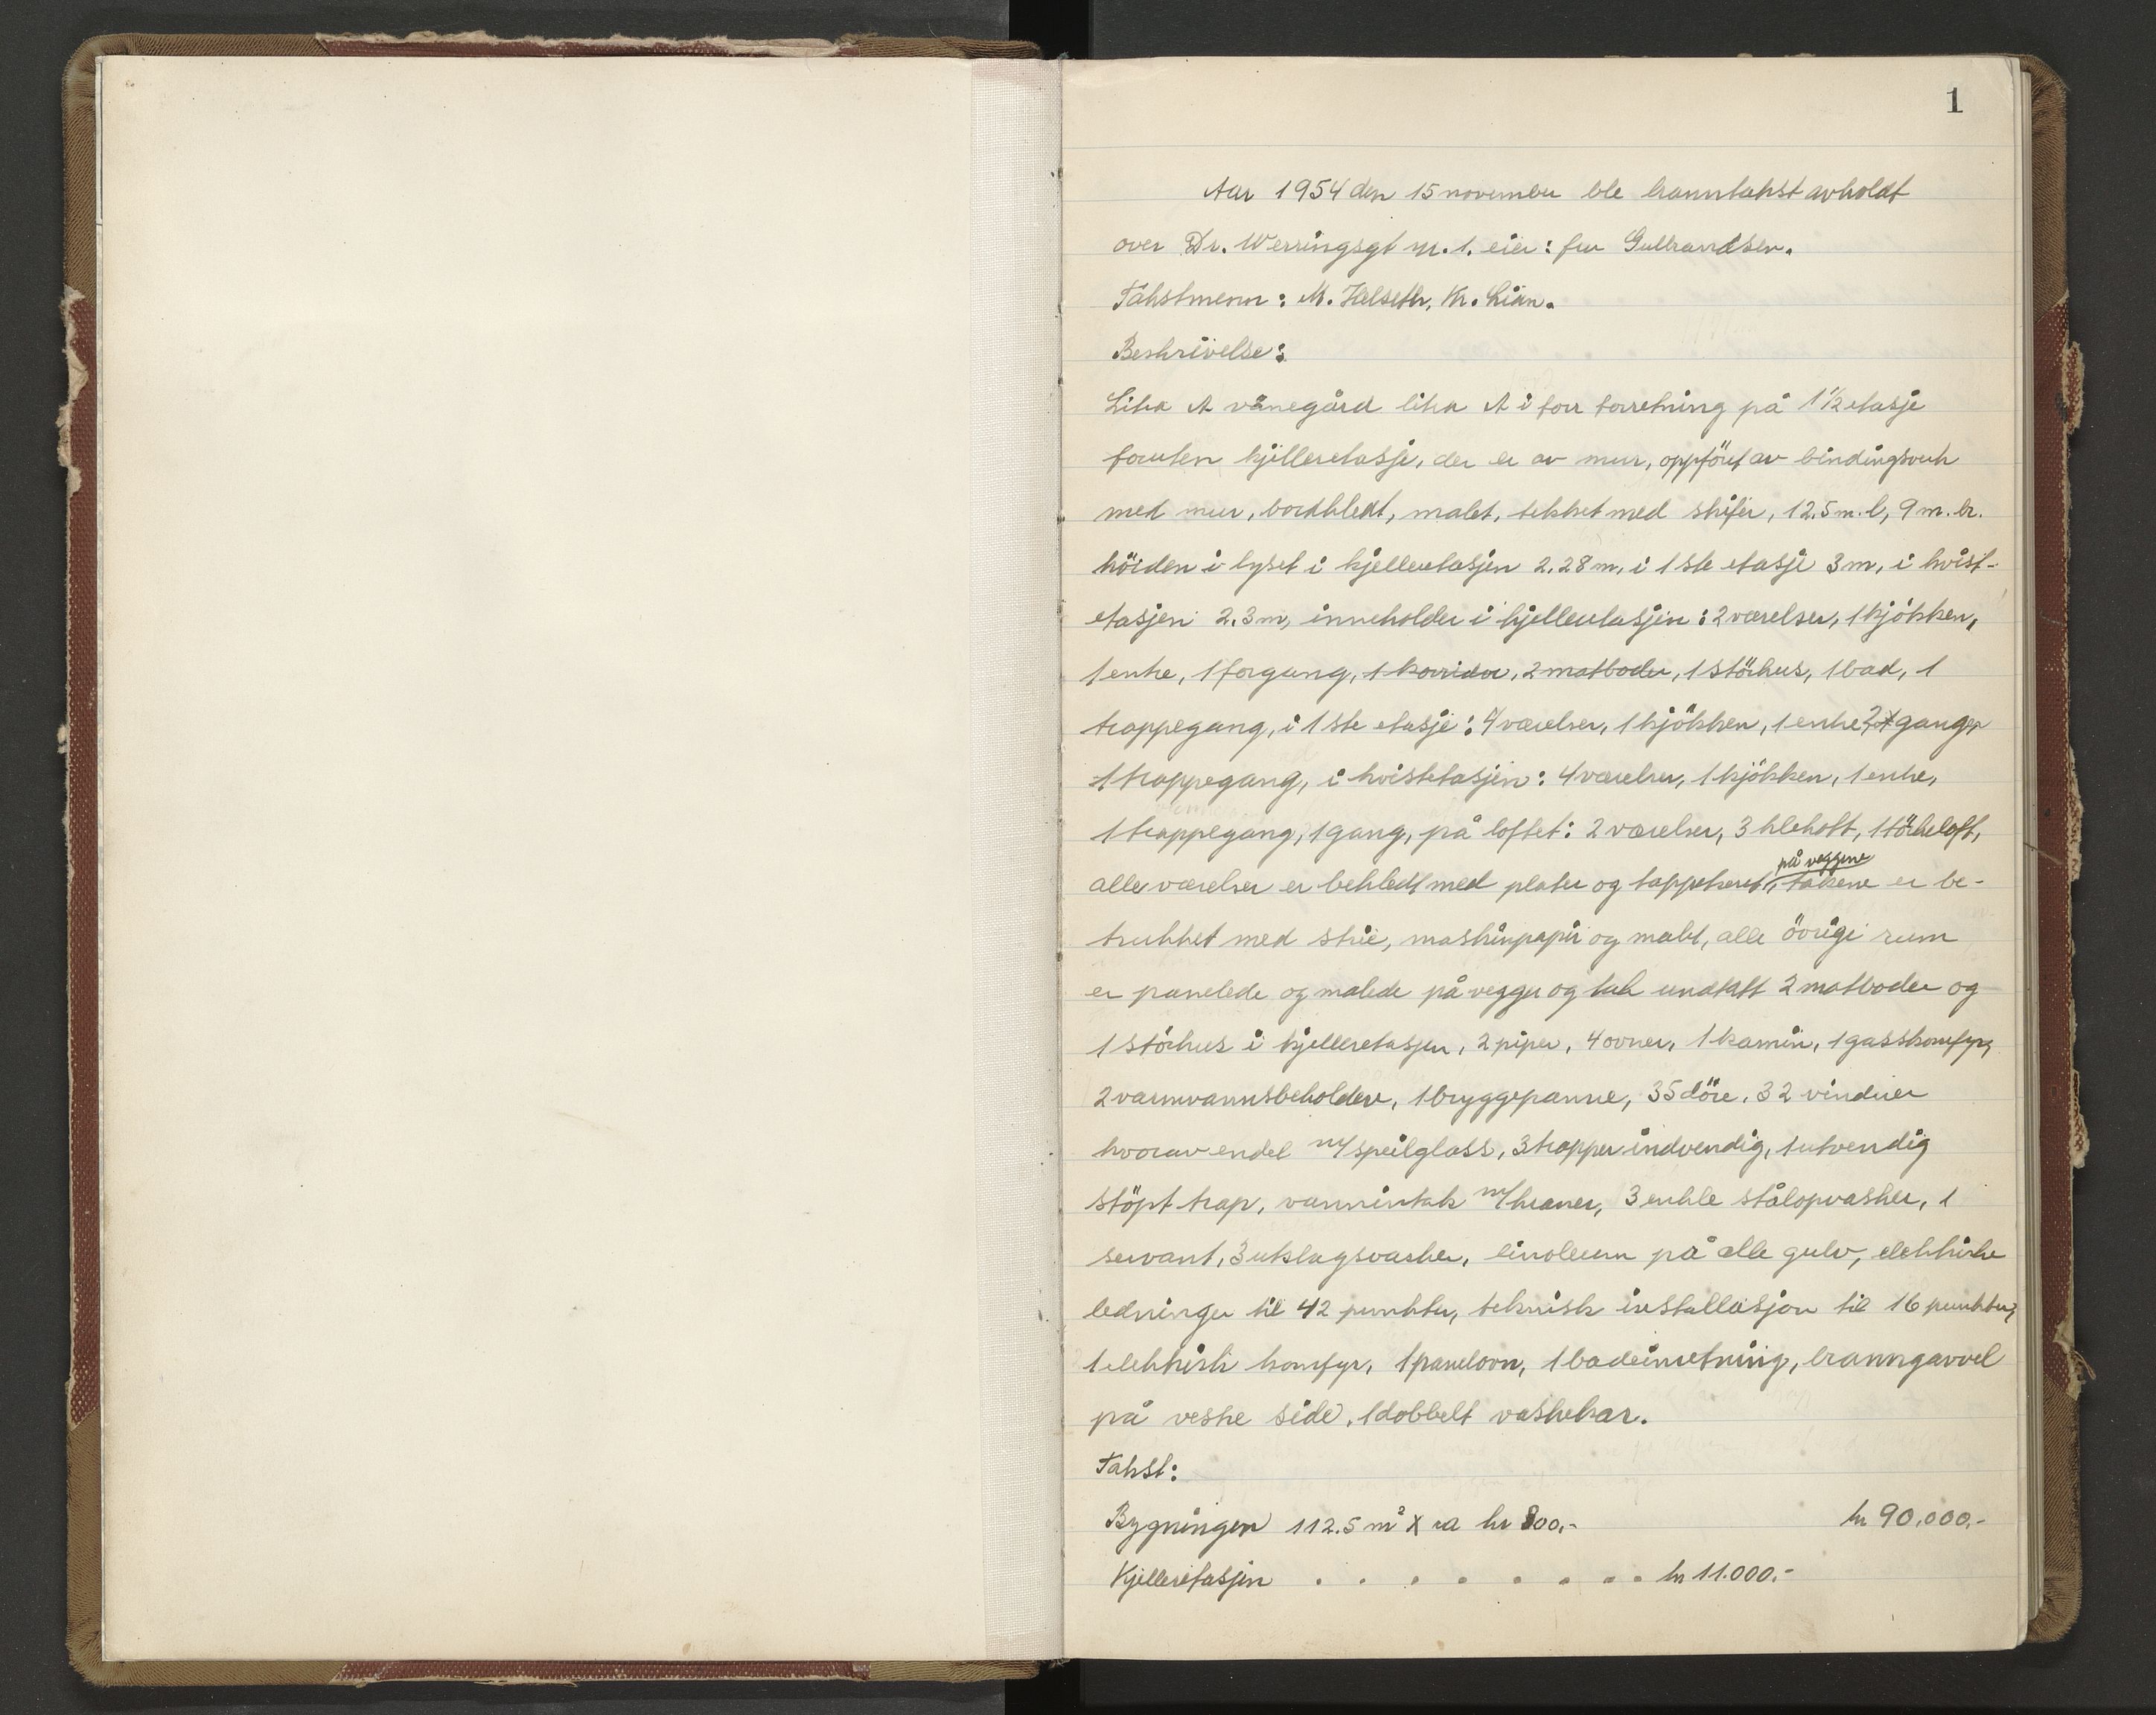 1
Aar 1954 den 15 november ble branntakst avholdt
over Dr. Werringsgt nr. 1. eier: fru Gulbrandsen.
Takstmenn: M. Helseth, Kr. Lian.
Beskrivelse:
Litra A vånegård litra A i forr forretning på 1 1/2 etasje
foruten kjelleretasje, der er av mur, oppfört av bindingsverk
med mur, bordkledt, malet, tekket med skifer, 12.5 m. l, 9 m. br.
höiden i lyset i kjelleretasjen 2.28 m, i 1ste etasje 3 m, i kvist-
etasjen 2.3 m, inneholder i kjelleretasjen: 2 værelser, 1 kjökken,
1 entre, 1 forgang, 1 korridor, 2 matboder, 1 störhus, 1 bad, 1
trappegang, i 1ste etasje: 4 værelser, 1 kjökken, 1 entre 2 ganger
1 trappegang, i kvistetasjen: 4 værelser, 1 kjökken, 1 entre,
1 trappegang, 1 gang, på loftet: 2 værelser, 3 klekott, 1 törkeloft,
alle værelser er bekledt med plater og tappetseret på veggene, takene er be-
trukket med strie, maskinpapir og malt, alle övrige rum
er panelede og malede på vegger og tak undtatt 2 matboder og
1 störhus i kjelleretasjen, 2 piper, 4 ovner, 1 kamin, 1 gasskomfyr,
2 varmvannsbeholdere, 1 bryggepanne, 35 döre, 32 vinduer
hvorav endel m/ speilglass, 3 trapper indvendig, 1 utvendig
stöpt trap, vanninntak m/ kraner, 3 enkle stålopvasker, 1
servant, 3 utslagsvasker, linoleum på alle gulv, elektriske
ledninger til 42 punkter, teknisk installasjon til 16 punkter,
1 elektrisk komfyr, 1 panelovn, 1 badeinnretning, branngavvel
på vestre side, 1 dobbelt vaskekar.
Takst:
Bygningen 112.5 m² x a kr 800,- kr 90.000.-
Kjelleretasjen . . . . . . . . . kr 11.000.-